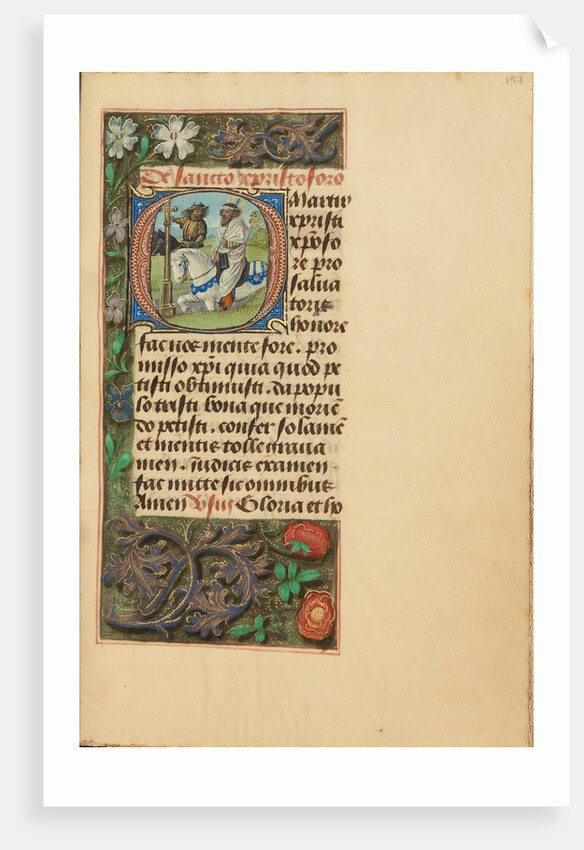 197
De sancto xpristoforo
Martir
xpristi
xpofo
re pro
salua
toris
honore
fac nos mente fore. pro
misso xpi quia quod pe
tisti obtinuisti. da popu
lo tristi bona que morien
do petisti. confer solamē
et mentis tolle graua
men. iudicis examen
fac mitte sic omnibus
Amen Vsus Gloria et ho